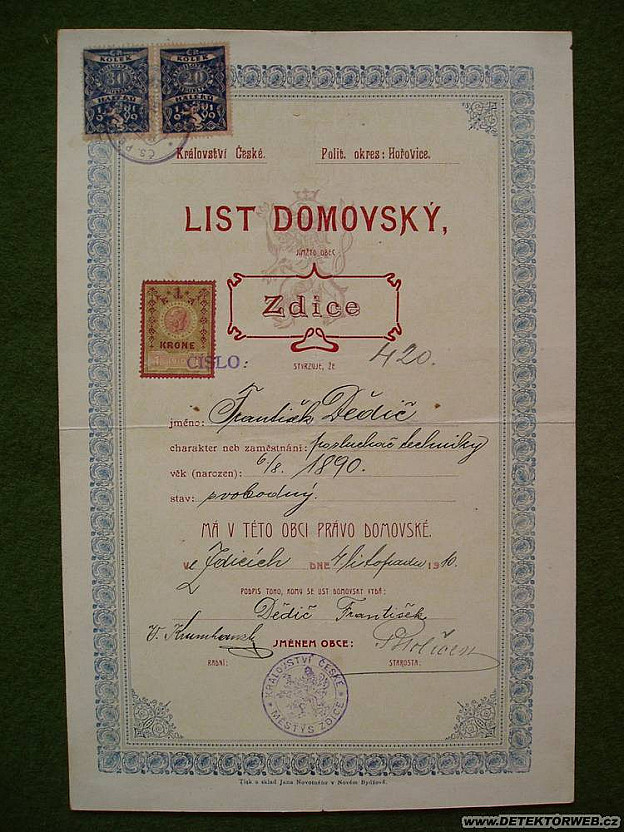 KOLEK KOLEK
30 20
HALÉŘŮ HALÉŘŮ
1919 1919
Království České. Polit. okres: Hořovice.
LIST DOMOVSKÝ,
JÍMŽTO OBEC
Zdice
1
KRONE
ČÍSLO: 420.
STVRZUJE, ŽE
jméno: František Dědič
charakter neb zaměstnání: posluchač techniky
věk (narozen): 6/8. 1890.
stav: svobodný.
MÁ V TÉTO OBCI PRÁVO DOMOVSKÉ.
V Zdicích DNE 4 listopadu 1910.
PODPIS TOHO, KOMU SE LIST DOMOVSKÝ VYDÁ:
Dědič František
JMÉNEM OBCE:
RADNÍ: STAROSTA:
KRÁLOVSTVÍ ČESKÉ
MĚSTYS ZDICE
Tisk a sklad Jana Novotného v Novém Bydžově.
WWW.DETEKTORWEB.CZ